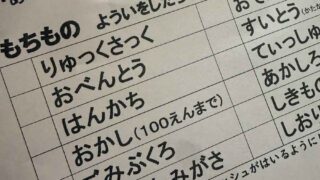 もちもの よういをしたら
りゅっくさっく
おべんとう
はんかち
おかし(100えんまで)
ごみぶくろ
すいとう(かたか
てぃっしゅ
あかしろ
しきもの
しおり
みがさ
ュがはいるように